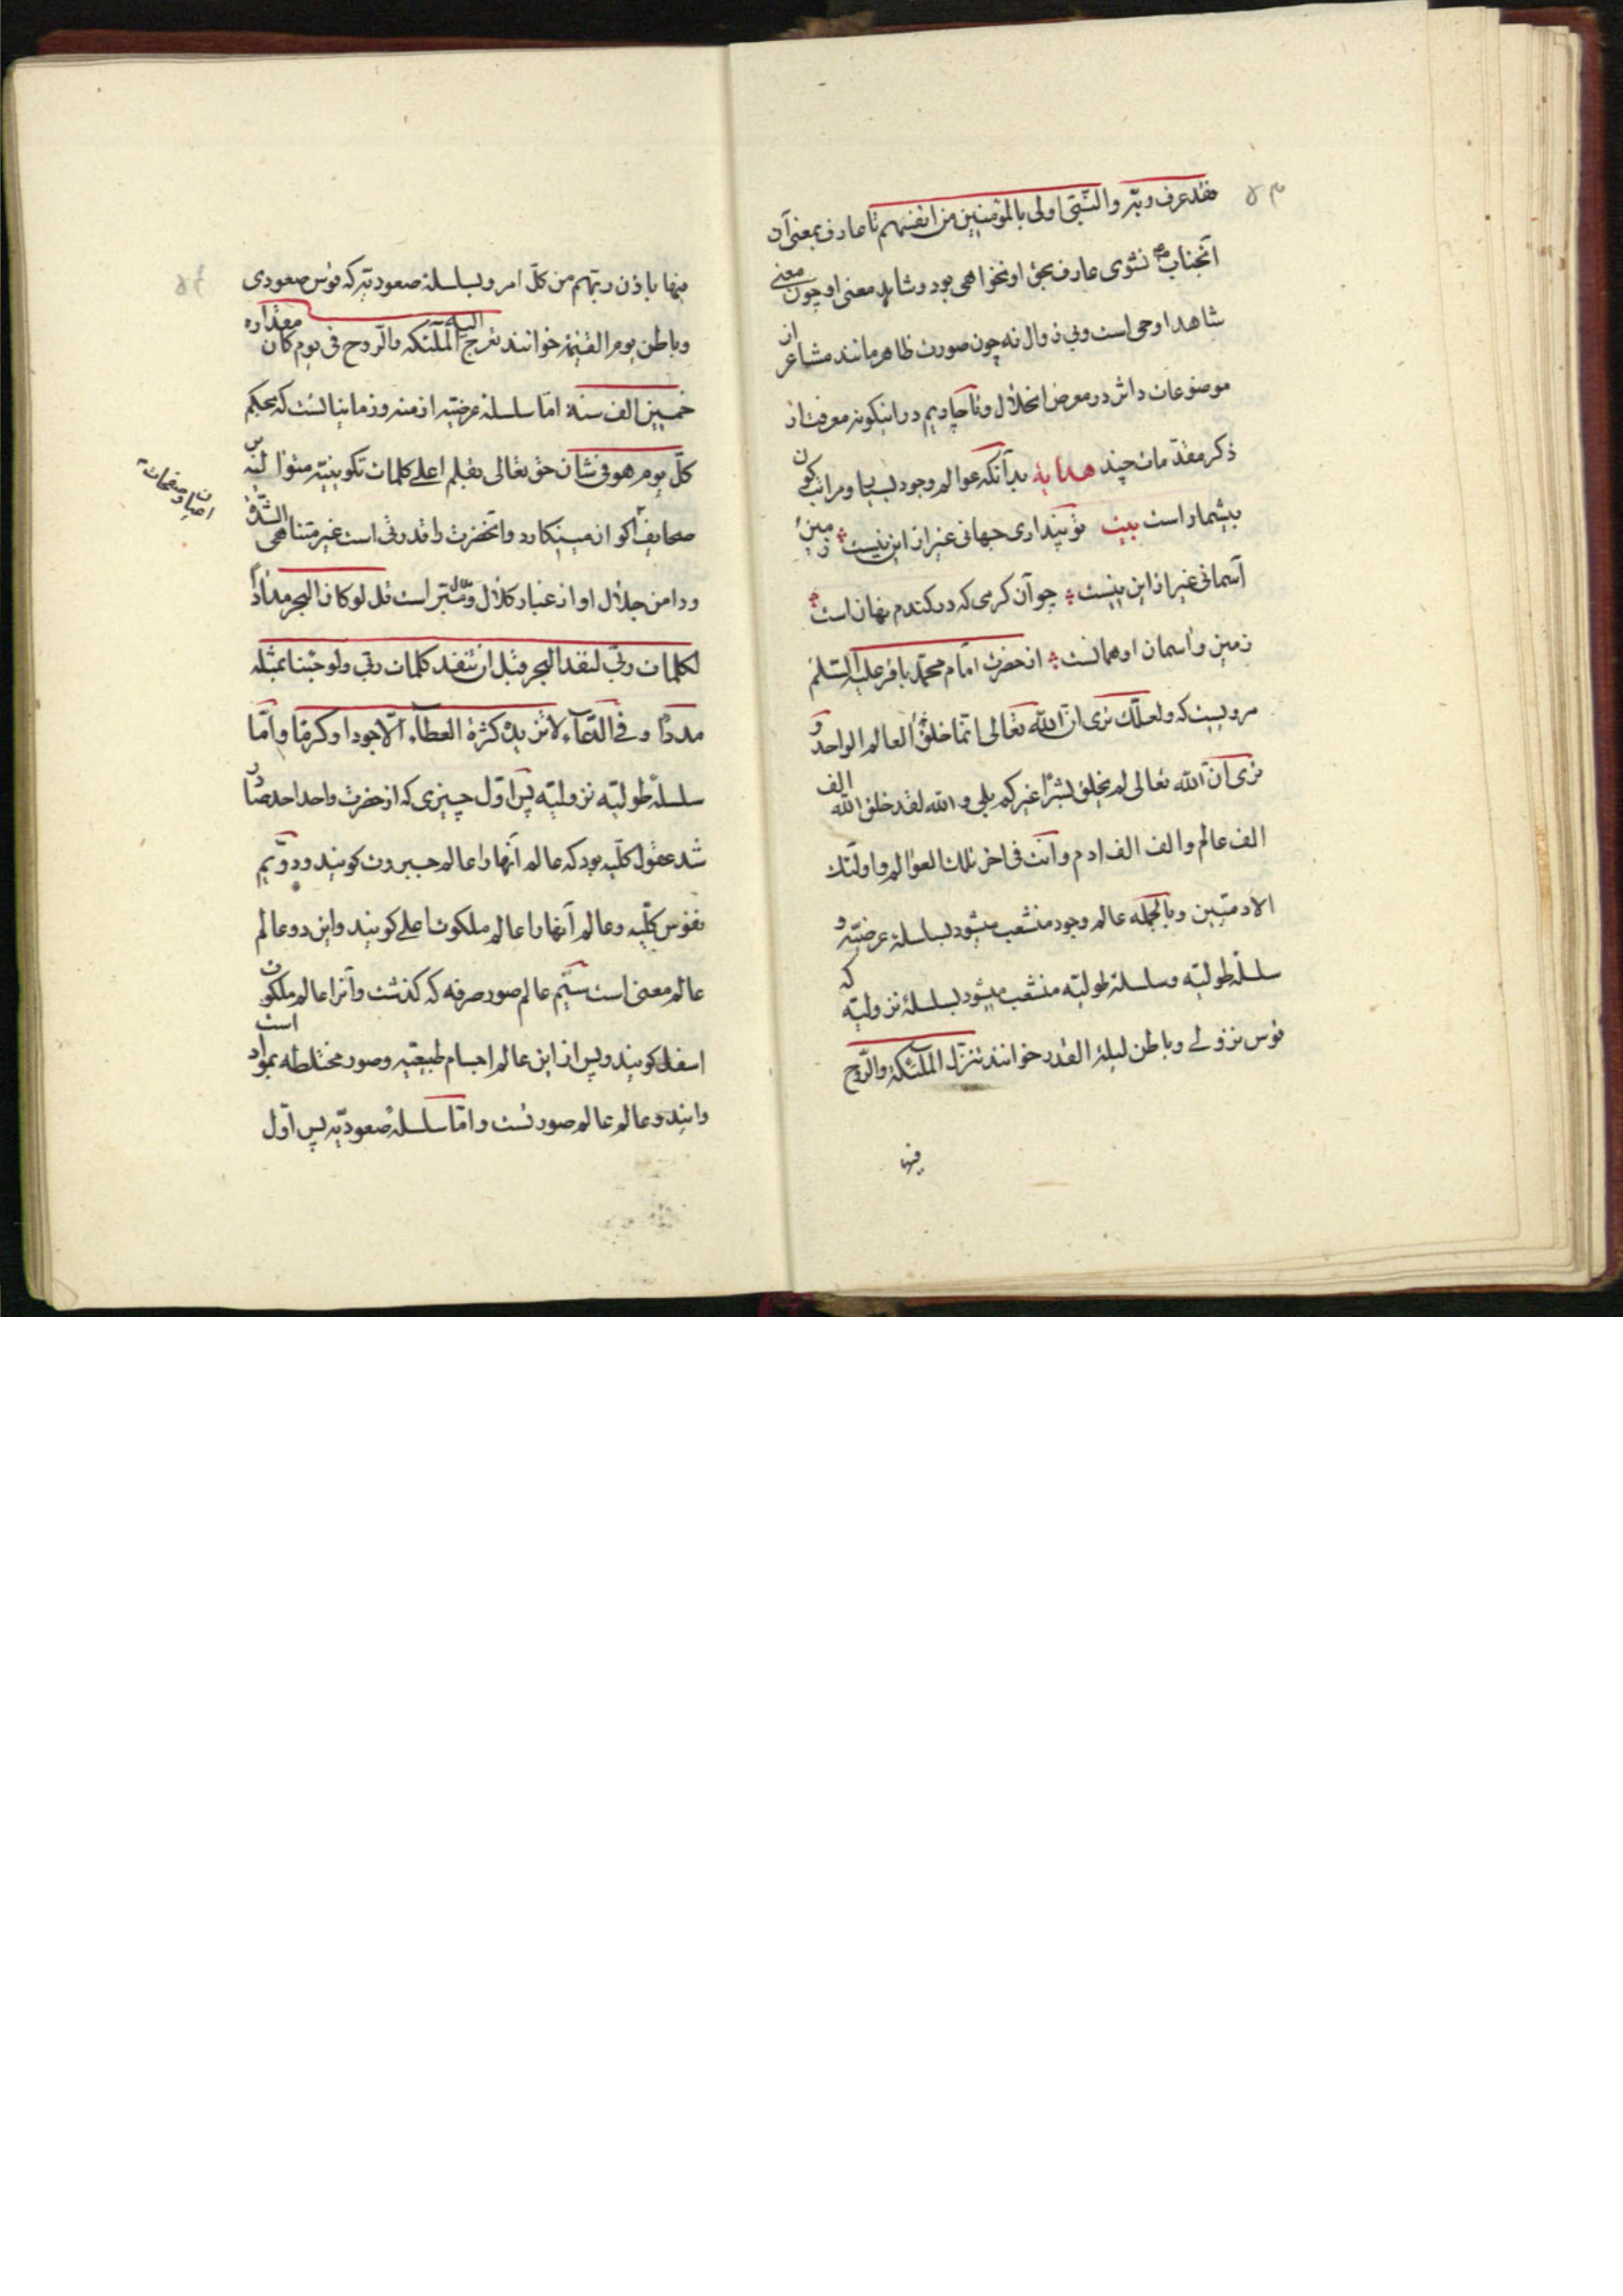 فقد عرف ربّه و النّبیّ اولی بالمؤمنین من انفسهم تا عارف بمعنی آن
آنجناب ص نشوی عارف بحق او نخواهی بود و شاید معنی او چون معنی
شاهد او حی است و بی زوال نه چون صورت ظاهر مانند مشاعر از
موضوعات داثر در معرض انحلال و ناچاریم در اینگونه معرفت از
ذکر مقدّمات چند هدایة بدآنکه عوالم وجود بسیار و مراتب کون
بیشمار است بیت تو پنداری جهانی غیر ازین نیست زمین و
آسمانی غیر ازین نیست چو آن کرمی که در گندم نهان است
زمین و آسمان او همانست از حضرت امام محمّد باقر علیه السّلم
مرویست که و لعلّک تری انّ الله تعالی انّما خلق هذا العالم الواحد و
تری انّ الله تعالی لم یخلق بشرا غیرکم بلی و الله لقد خلق الله الف
الف عالم و الف الف ادم و انت فی اخر تلک العوالم و اولئک
الادمیّین و بالجمله عالم وجود منشعب میشود بسلسلهٔ عرضیّه و
سلسلهٔ طولیّه و سلسلهٔ طولیّه منشعب میشود بسلسلهٔ نزولیّه که
قوس نزولی و باطن لیلة القدر خوانند تنزّل الملئکة و الرّوح
فیها
فیها باذن ربّهم من کلّ امر و بسلسلهٔ صعودیّه که قوس صعودی
و باطن یوم القیٰمة خوانند تعرج الملئکه و الرّوح الیه فی یوم کان مقداره
خمسین الف سنة امّا سلسلهٔ عرضیّه ازمنه و زمانیاتست که بحکم
کلّ یوم هو فی شان حق تعالی بقلم اعلی کلمات تکوینیّه متوالیه بر
صحایف اکوان مینگارد و آنحضرت را قدرتی است غیر متناهی الشّدة
و دامن جلال او از غبار کلال و ملال مبرّاست قل لو کان البحر مدادا
لکلمات ربّی لنفد البحر قبل ان تنفد کلمات ربّی و لو جئنا بمثله
مددا و فی الدّعآء لا تزیده کثرة العطآء الّا جودا و کرما و امّا
سلسلهٔ طولیّه نزولیّه پس اوّل چیزی که از حضرت واحد احد صادر
شد عقول کلّیه بود که عالم آنها را عالم جبروت گویند و دوّیم
نفوس کلّیه و عالم آنها را عالم ملکوت اعلی گویند و این دو عالم
عالم معنی است سیّیم عالم صور صرفه که گذشت و آنرا عالم ملکوت
اسفل گویند و پس از این عالم اجسام طبیعیّه و صور مختلطه بمواد است
و اینه دو عالم عالم صورتست و امّا سلسلهٔ صعودیّه پس اوّل